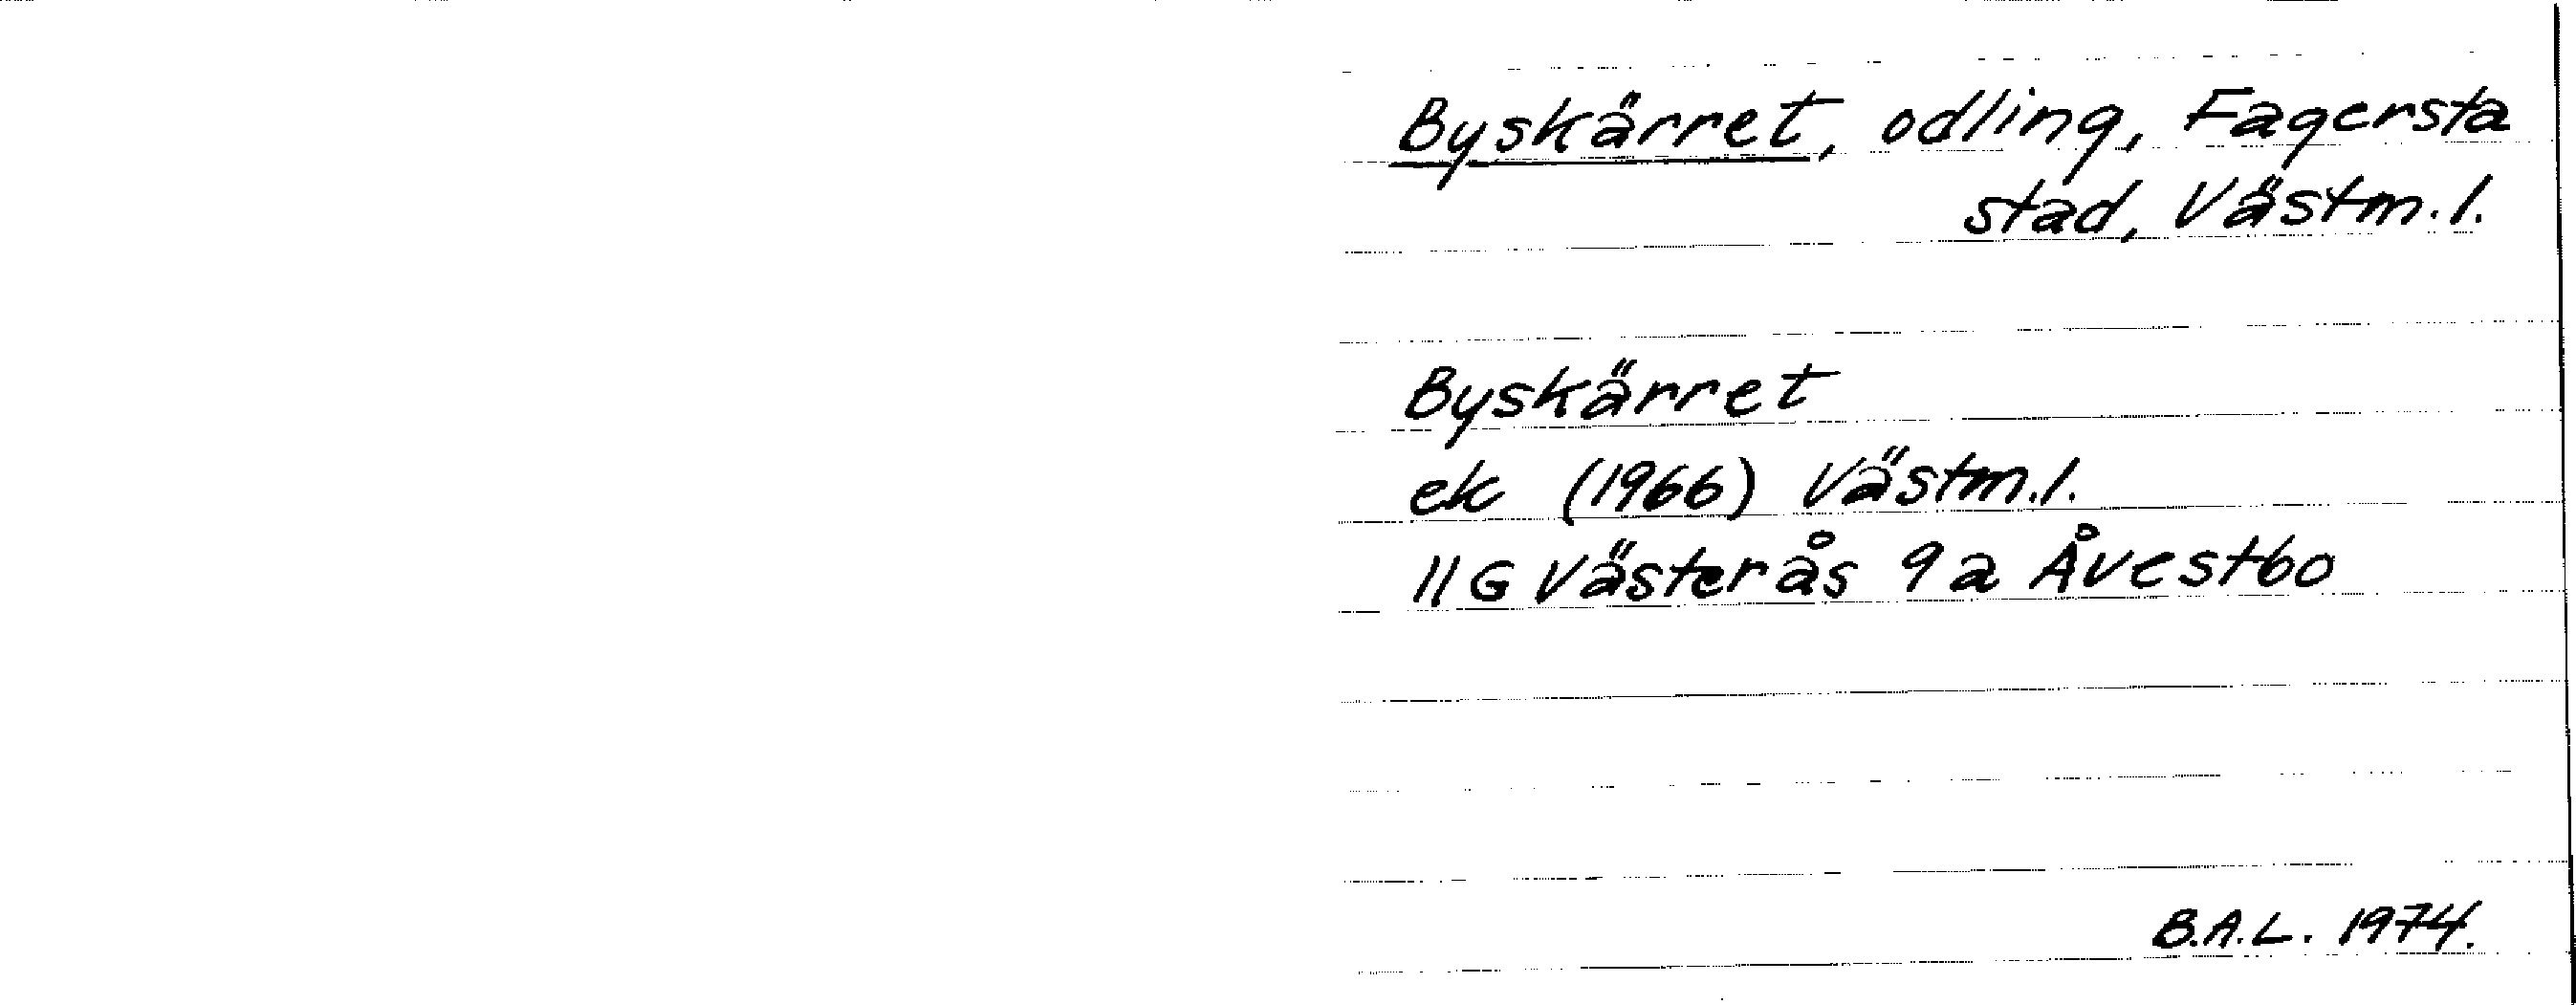 Byskärret, odling, Fagersta
stad, Västm.l.
Byskärret
ek (1966) Västm.l.
11G Västerås 9a Åvestbo
B.A.L. 1974.